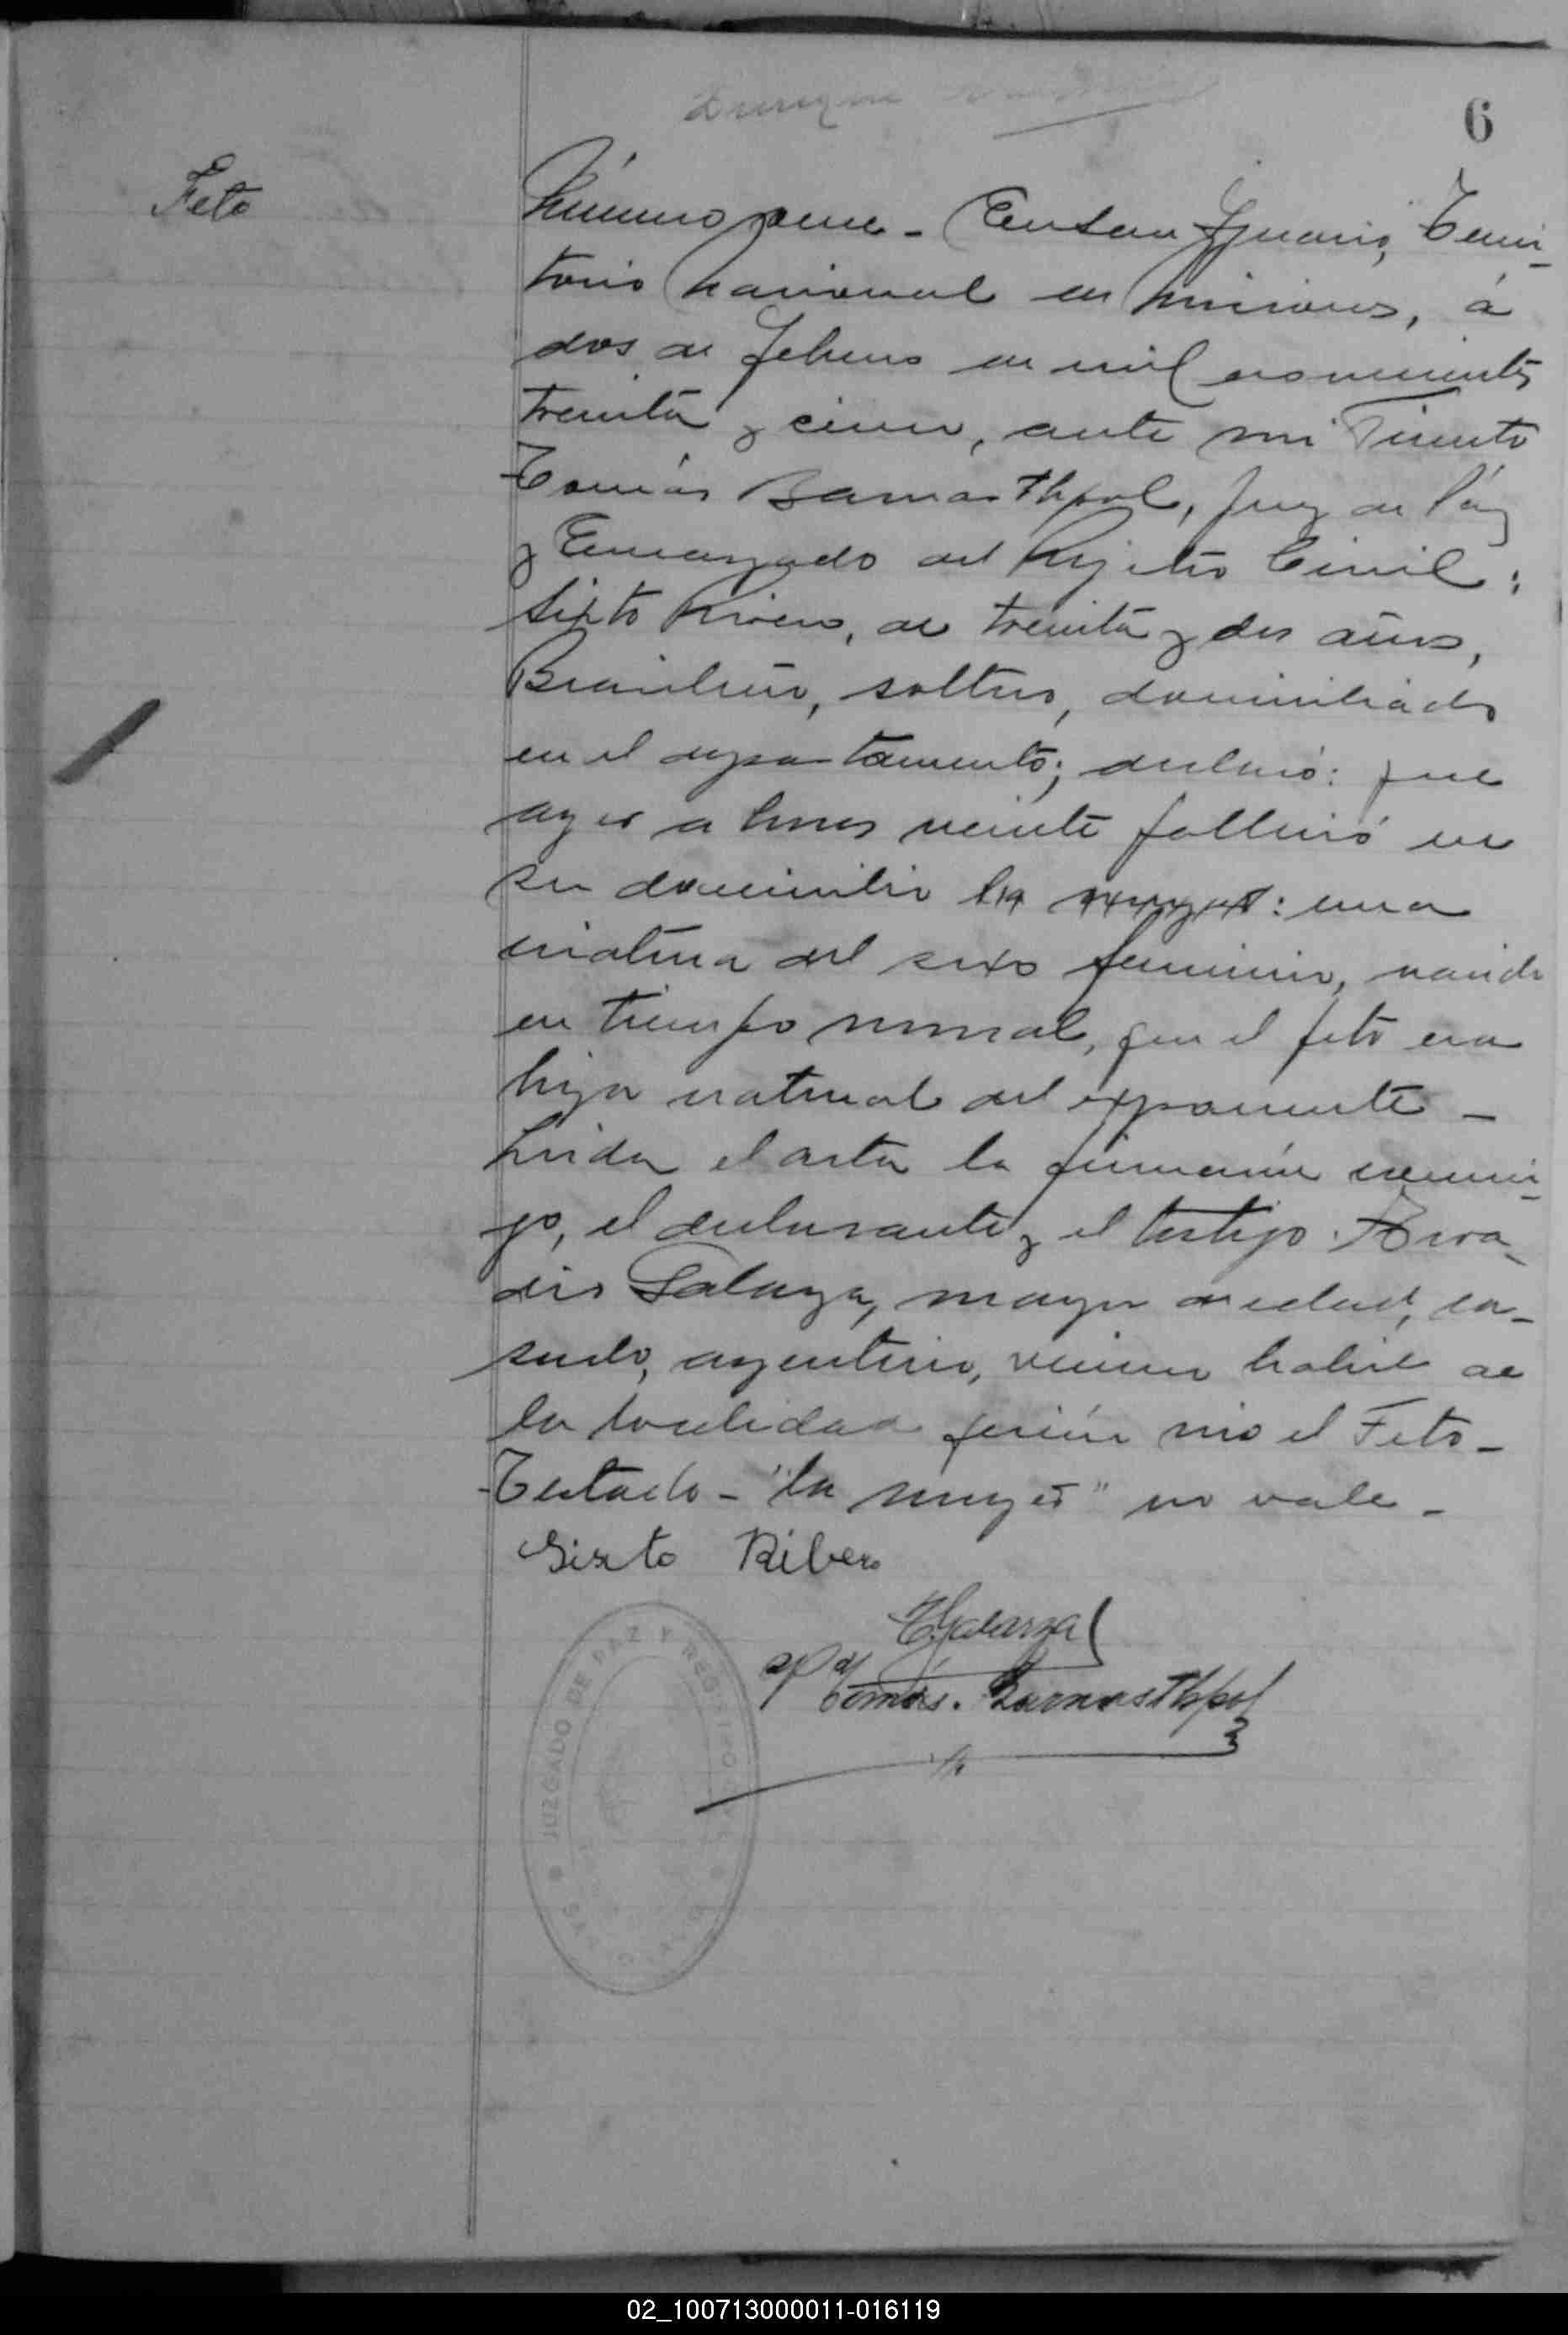 6
Feto
Número once - En San Ignacio, Terri-
torio Nacional de Misiones, á
dos de Febrero de mil novecientos
treinta y cinco, ante mi
Tomás BarnasThpol, Juez de Páz
y Encargado del Rejistro Civil:
Sixto Rivero, de treinta y dos años,
Brasilero, soltero, domiciliado
en el departamento; declaró: que
ayer a horas veinte falleció en
su domicilio la mujer: una
criatura del sexo femenino, nacida
en tiempo normal, que el feto era
hija natural del exponente -
Leida el acta la firmaron conmi-
go, el declarante y el testigo
mayor de edad, ca-
sado, argentino, vecino habil de
la localidad quién vio el Feto -
Testado - "la mujer" no vale -
Sixto Ribero
Galarza
Tomás. BarnasThpol
JUZGADO DE PAZ Y REGISTRO
02_100713000011-016119